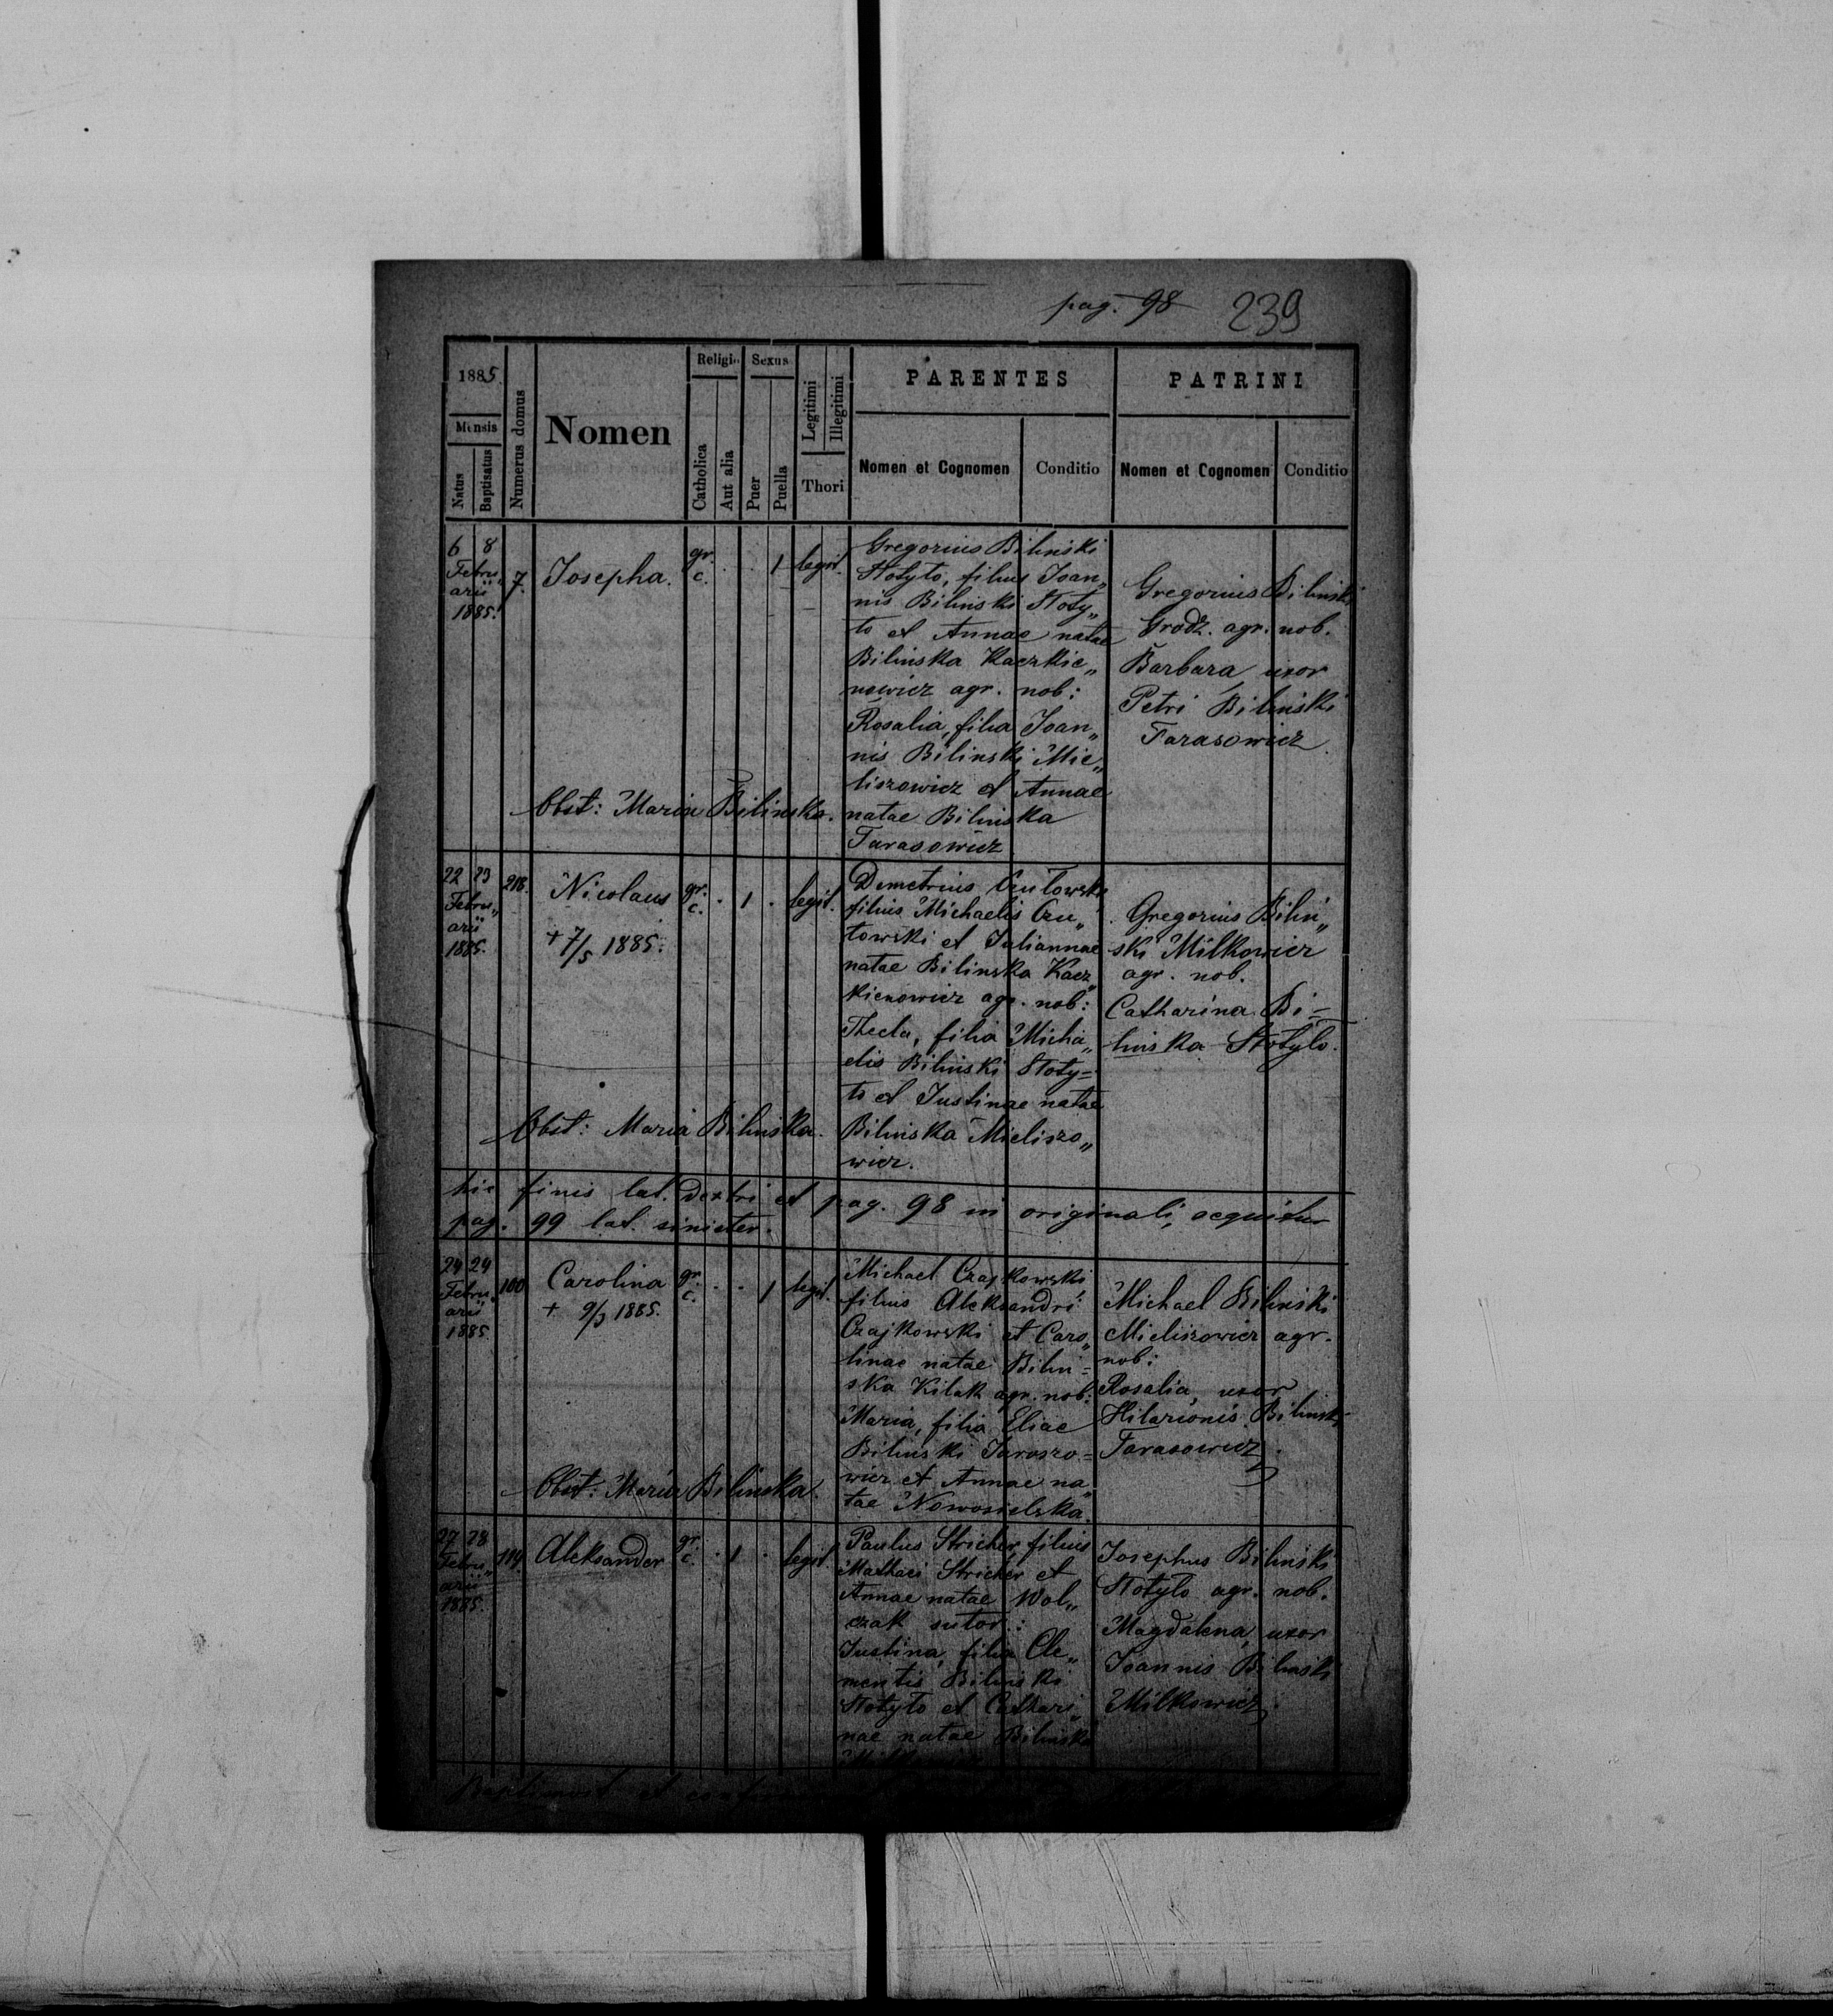 pag. 98 239
1885
Mensis
Natus
Baptisatus
Numerus domus
Nomen
Religio
Catholica
Aut alia
Sexus
Puer
Puella
Legitimi
Illegitimi
Thori
PARENTES
Nomen et Cognomen
Conditio
PATRINI
Nomen et Cognomen
Conditio
6 8
Febru„
arii
1885.
7.
Josepha.
gr.
c.
. . 1 legit.
Gregorius Biliński
Stotyło, filius Joan„
nis Biliński Stoty„
ło et Annae natae
Bilińska Kaczkie„
nowicz agr. nob:
Rosalia, filia Joan„
nis Biliński Mie„
liszowicz et Annae
natae Bilińska
Tarasowicz
Gregorius Biliński
Grodz. agr. nob.
Barbara uxor
Petri Biliński
Tarasowicz.
Obst: Maria Bilińska.
22 23
Febru„
arii
1885.
218.
Nicolaus
+ 7/5 1885.
gr.
c.
. 1 . legit.
Demetrius Czułowski
filius Michaelis Czu„
łowski et Juliannae
natae Bilińska Kacz„
kienowicz agr. nob:
Thecla, filia Micha„
elis Biliński Stoty=
ło et Justinae natae
Bilińska Mieliszo„
wicz.
Gregorius Biliń„
ski Milkowicz
agr. nob.
Catharina Bi=
lińska Stotyło.
Obst: Maria Bilińska.
hic finis lat. dextri et pag. 98 in originali, sequitur
pag. 99 lat. sinister.
24 24
Febru„
arii
1885.
100
Carolina
+ 9/3 1885.
gr.
c.
. . 1 legit.
Michael Czajkowski,
filius Aleksandri
Czajkowski et Caro„
linae natae Biliń=
ska Kilak agr. nob:
Maria, filia Eliae
Biliński Jaroszo=
wicz et Annae na„
tae Nowosielska.
Michael Biliński
Mieliszowicz agr.
nob:
Rosalia, uxor
Hilarionis Biliński
Tarasowicz.
Obst: Maria Bilińska.
27 28
Febru„
arii
1885.
114.
Aleksander
gr.
c.
. 1 . legit.
Paulus Stricher filius
Mathaei Stricher et
Annae natae Wol„
czak sutor:
Justina, filia Cle„
mentis Biliński
Stotyło et Cathari„
nae natae Bilińska
Josephus Biliński
Stotyło agr. nob.
Magdalena, uxor
Joannis Biliński
Milkowicz.